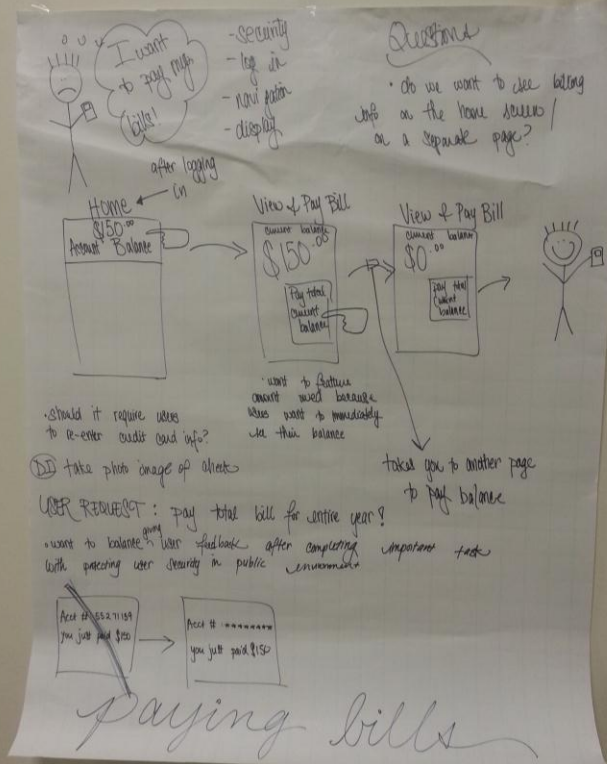 I want
to pay my
bills!
- security
- log in
- navigation
- display
Questions
• do we want to see billing
info on the home screen /
on a separate page?
after logging
in
Home
$150.00
Account Balance
View & Pay Bill
current balance
$150.00
Pay total
current
balance
View & Pay Bill
current balance
$0.00
pay total
current
balance
• want to feature
amount owed because
users want to immediately
see their balance
• should it require users
to re-enter credit card info?
takes you to another page
to pay balance
DD take photo image of check
USER REQUEST: pay total bill for entire year?
• want to balance giving user feedback after completing important task
with protecting user security in public environment
Acct #
you just paid $150
Acct # ********
you just paid $150
paying bills